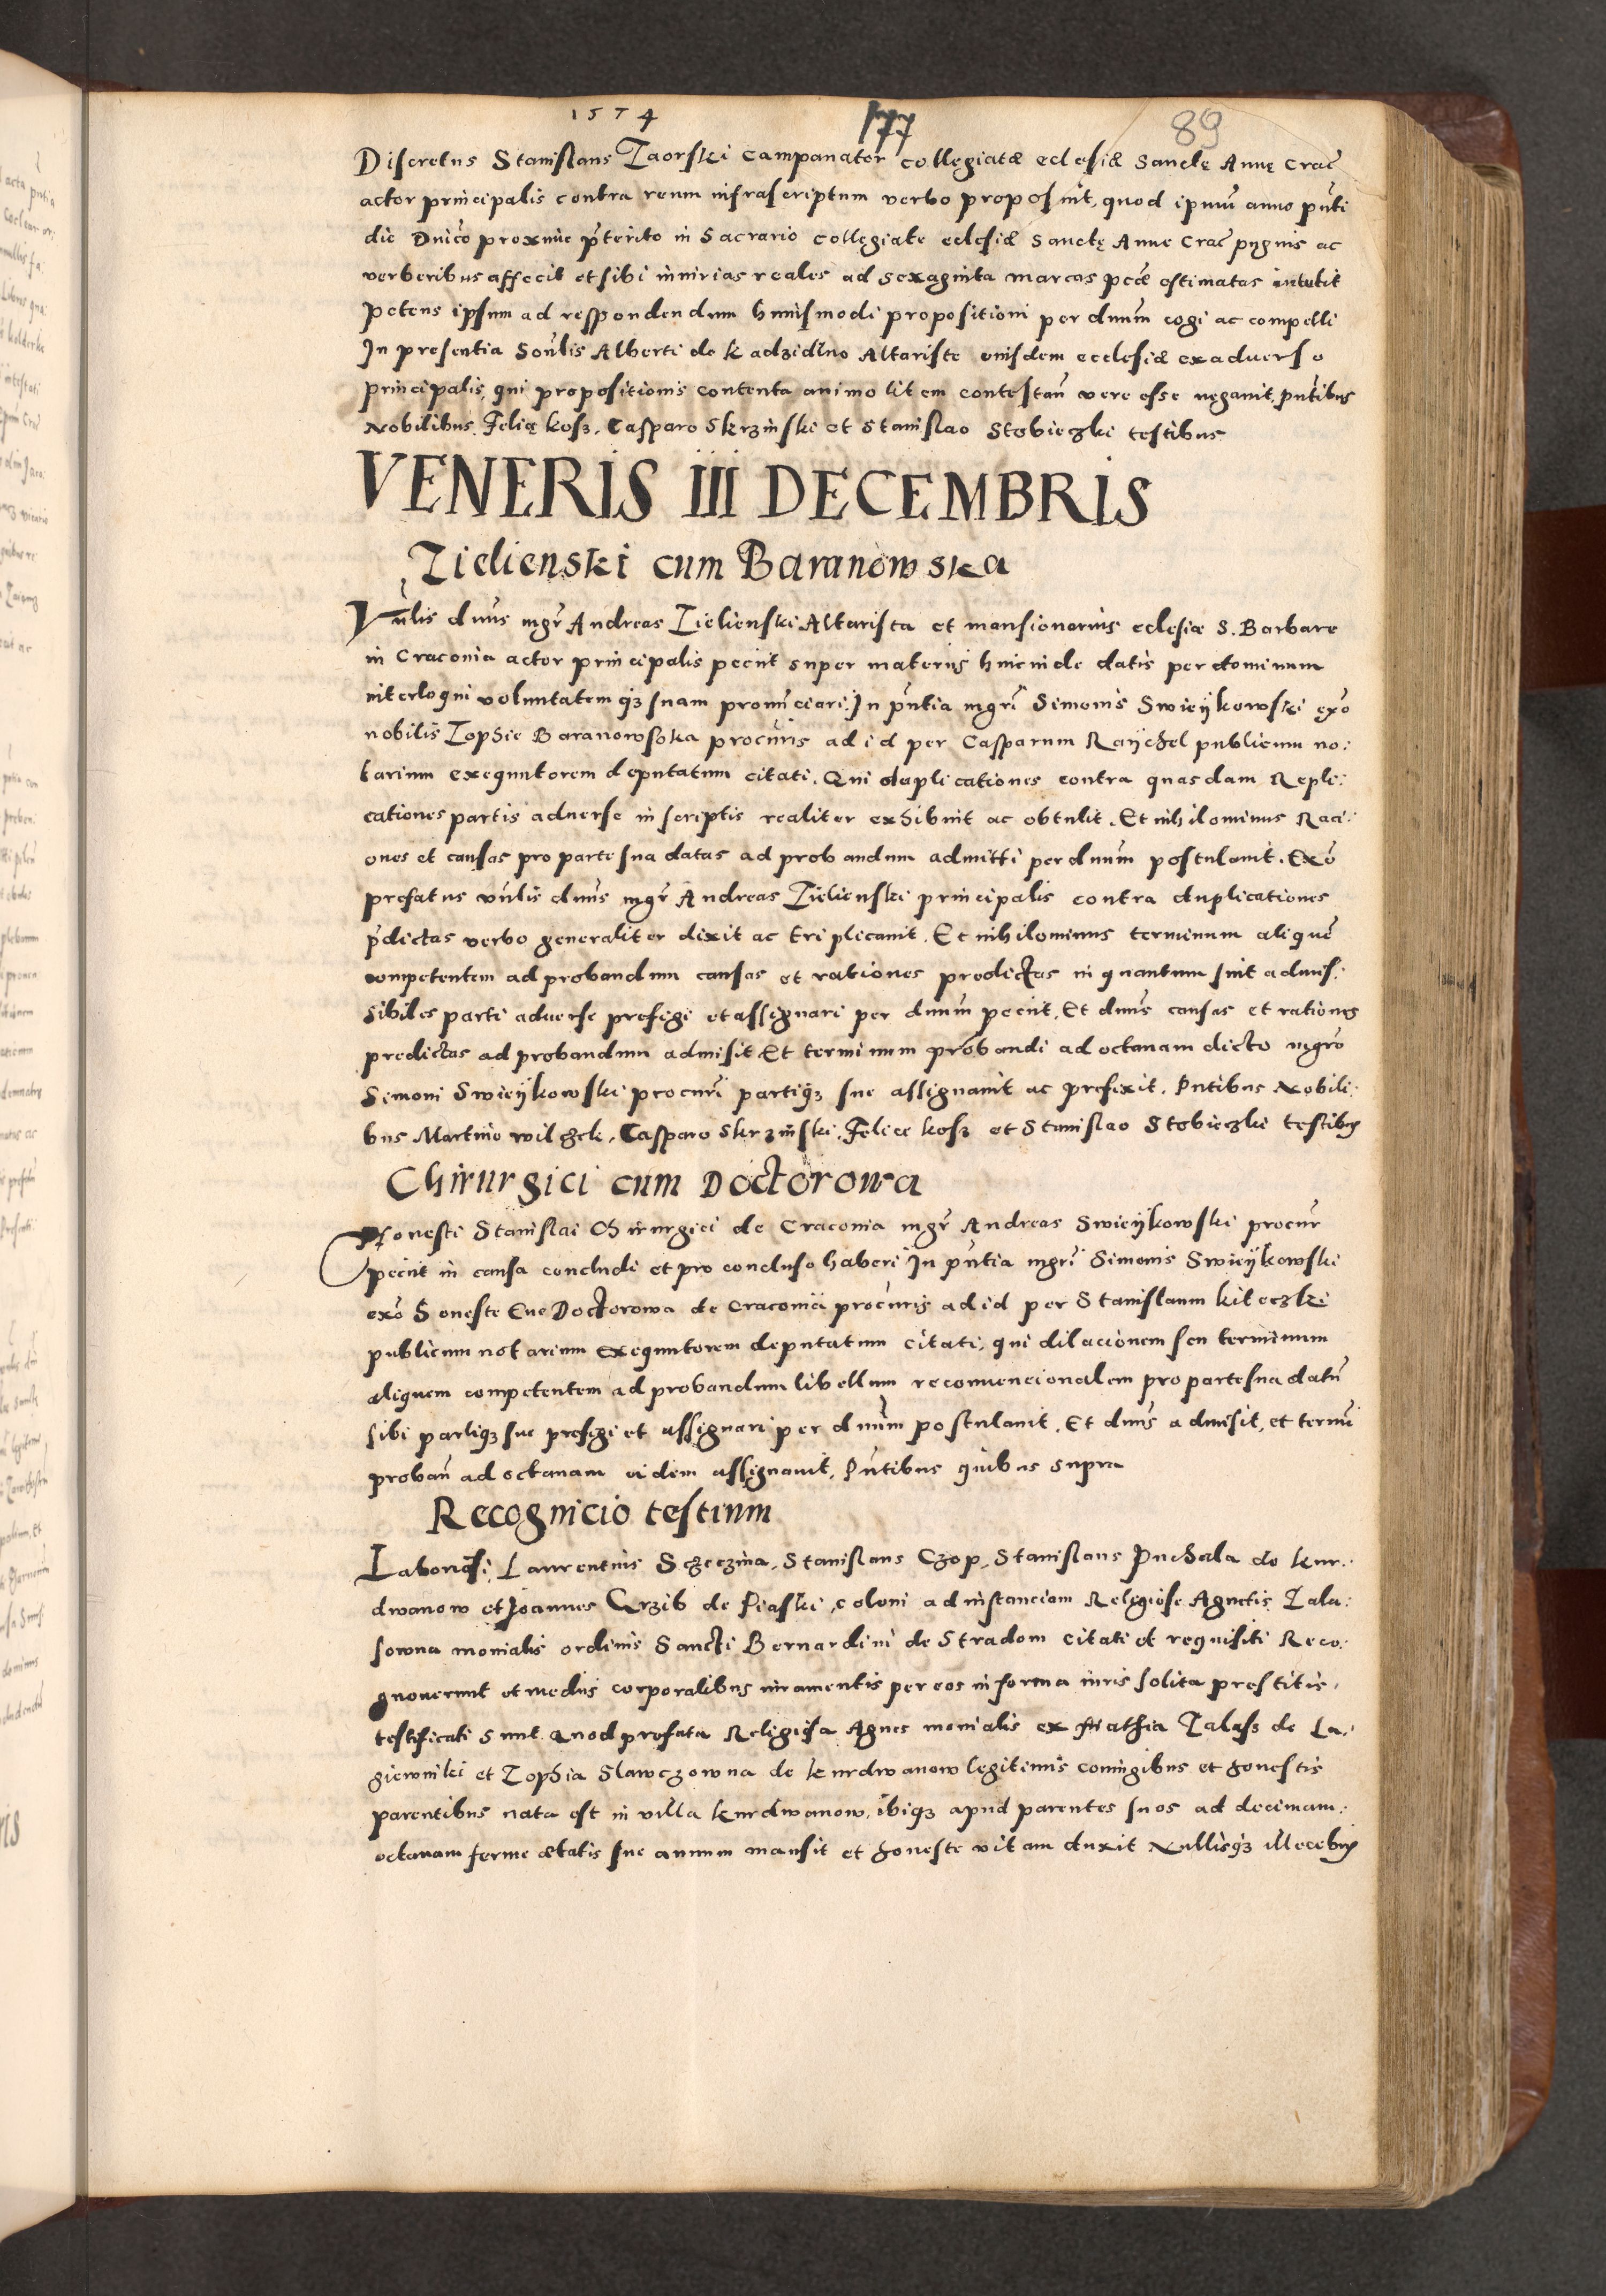 1574
177
89
Discretus Stanislaus Zaorski campanator collegiatæ eclesiæ Sanctę Annę Crac̃
actor principalis contra reum infrascriptum verbo proposuit, quod ipm̃ anno pñti
die Dnico proxime p̃terito in Sacrario Collegiate eclesiæ Sanctę Anne Crac̃ pugnis ac
verberibus affecit et sibi iniurias reales ad sexaginta marcas pec̃ estimatas intulit
petens ipsum ad respondendum huiusmodi propositioni per dnum̃ cogi ac compelli
In presentia Alberti de Altariste eiusdem ecclesiæ ex adverso
principalis, qui propositionis contenta animo litem contestañ vere esse negavit, Pñtibus
Nobilibus Felicę kosz, Casparo Skrzinski et Stanislao Stobieczki testibus
VENERIS III DECEMBRIS
Zielienski cum Baranowska
Vñlis dnũs mgr̃ Andreas Zielienski Altarista et mansionarius eclesiæ S. Barbare
in Craconia actor principalis peciit super materijs hincinde datis per dominum
interloqui voluntatemqꝫ suam pronunciari. In pñtia mgrĩ Simonis Swieykowski exõ
nobilis Zophie Baranowska procurĩs ad id per Casparum Raychel publicum no:
tarium exequutorem deputatum citati. Qui duplicationes contra quasdam Repli:
cationes partis adverse in scriptis realiter exhibuit ac obtulit. Et nihilominus Raci:
ones et causas pro parte sua datas ad probandum admitti per dnum̃ postulavit. Exõ
prefatus vñlis dnũs mgr̃ Andreas Zielienski principalis contra duplicationes
p̃dictas verbo generaliter dixit ac triplicavit. Et nihilominus terminum aliquẽ
competentem ad probandum causas et rationes predictas in quantum sint admis:
sibiles parti adverse prefigi et assignari per dnum̃ peciit. Et dnũs causas et rationes
predictas ad probandum admisit Et terminum probandi ad octavam dicto mgrõ
Simoni Swieykowski procurĩ partiqꝫ sue assignavit ac prefixit. Pñtibus Nobili:
bus Martino wilgeli, Casparo Skrzinski, Felice kosz et Stanislao Stobieczki testibus
Chirurgici cum Doctorowa
Honesti Stanislai Chirurgici de Craconia mgr̃ Andreas Swieykowski procur̃
peciit in causa concludi et pro concluso haberi In pñtia mgrĩ Simonis Swieykowski
exõ Honeste Eve Doctorowa de Craconia procurĩs ad id per Stanislaum kiteczki
publicum notarium exequutorem deputatum citati, qui dilacionem seu terminum
aliquem competentem ad probandum libellum reconvencionalem pro parte sua datũ
sibi partiqꝫ sue prefigi et assignari per dnum̃ postulavit. Et dnũs admisit, et termĩ
probañ ad octavam eidem assignavit, Pñtibus quibus supra
Recognicio testium
Laboriosi Laurentius Szczina, Stanislaus Czop, Stanislaus Puchala de kur:
dwanow et Joannes Grzib de Piaski, coloni ad instanciam Religiose Agnetis Zala:
sowna monialis ordinis Sancti Bernardini de Stradom citati et requisiti Reco:
gnoverunt et mediis corporalibus iuramentis per eos in forma iuris solita prestitis,
testificati sunt Quod prefata Religiosa Agnes monialis ex Mathia Zalass de La:
giewniki et Zophia Slawczowna de kurdwanow legitimis coniugibus et honestis
parentibus nata est in villa kurdwanow, ibiqꝫ apud parentes suos ad decimam:
octavam ferme ætatis sue annum mansit et honeste vitam duxit Nullisqꝫ illecebris